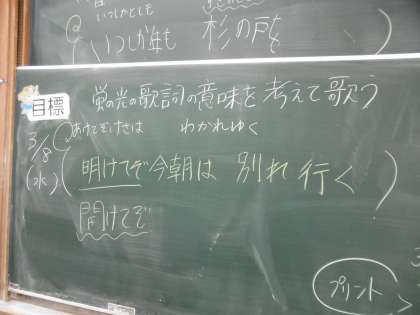 いつしかとしも
いつしか年も 杉の戸を
目標
蛍の光の歌詞の意味を考えて歌う
3/8
(水)
あけてぞけさは わかれゆく
(明けてぞ今朝は 別れ行く)
開けてぞ
プリント